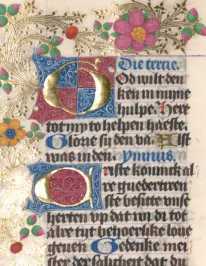 Die tercie.
God wilt den
ken in mijne
hulpe. Here
tot my to helpen haeste.
Glorie si den va. Alst
was in den. Ymnus.
Criste koninck al
re guedertiren
ste besitte unse
herten up dat wi di tot
alre tijt behoerlike love
geven Gedenke mei
ster der salicheit dat du